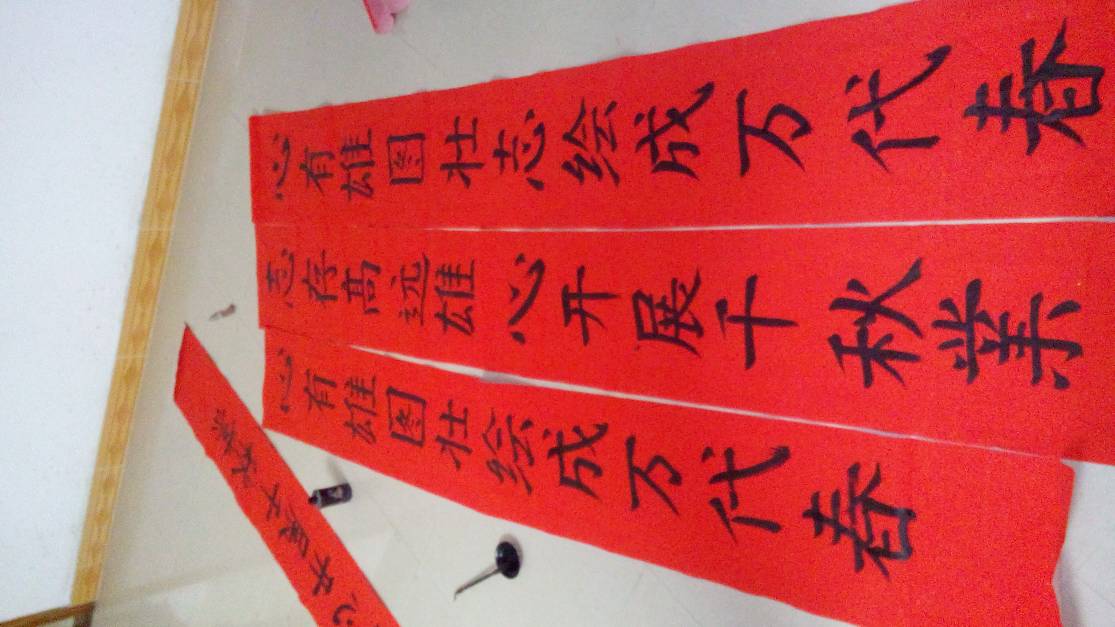 心有雄图壮志绘成万代春
志存高远雄心开展千秋業
心有雄图壮绘成万代春
心开展千秋業